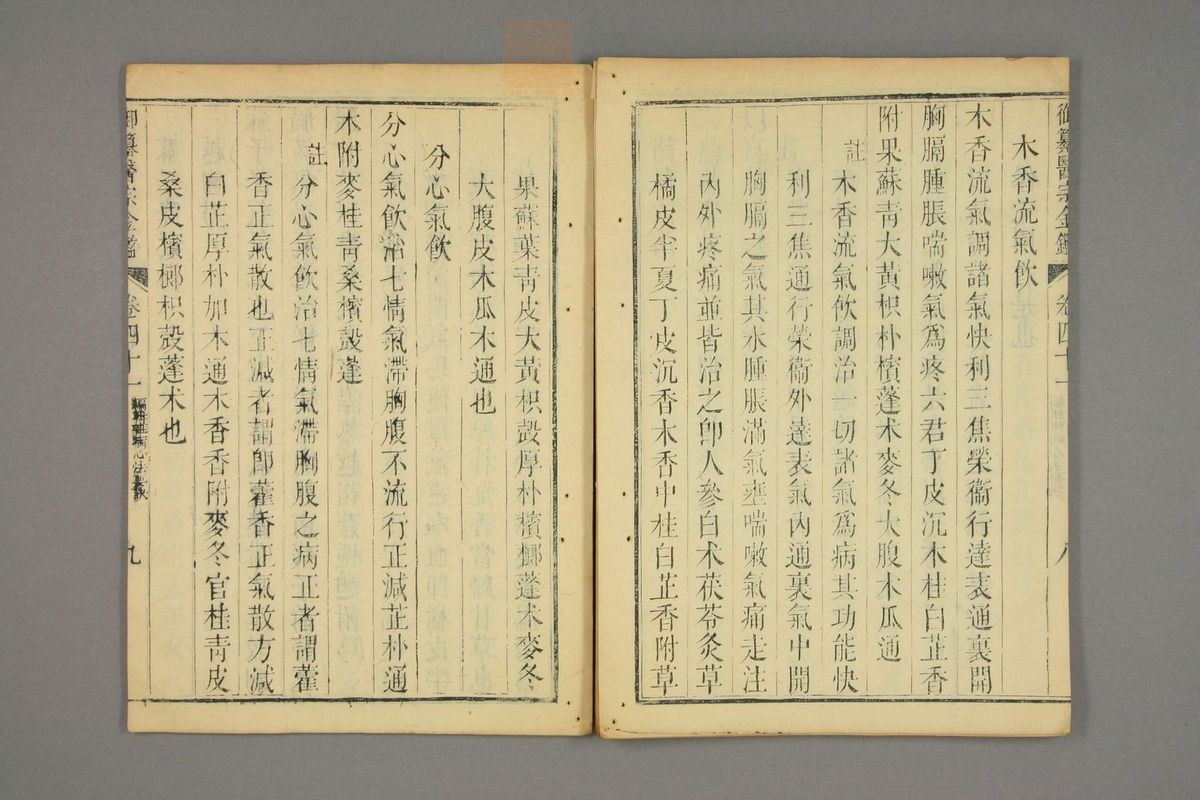 御纂醫宗金鑑 卷四十一 八
木香流氣飲
木香流氣調諸氣快利三焦榮衞行達表通裏開
胸膈腫脹喘嗽氣爲疼六君丁皮沉木桂白芷香
附果蘇靑大黃枳朴檳蓬术麥冬大腹木瓜通
註 木香流氣飲調治一切諸氣爲病其功能快
利三焦通行榮衞外達表氣內通裏氣中開
胸膈之氣其水腫脹滿氣壅喘嗽氣痛走注
內外疼痛並皆治之卽人參白术茯苓炙草
橘皮半夏丁皮沉香木香中桂白芷香附草
果蘇葉靑皮大黃枳殼厚朴檳榔蓬术麥冬
大腹皮木瓜木通也
分心氣飲
分心氣飲治七情氣滯胸腹不流行正減芷朴通
木附麥桂靑桑檳殼蓬
註 分心氣飲治七情氣滯胸腹之病正者謂藿
香正氣散也正減者謂卽藿香正氣散方減
白芷厚朴加木通木香香附麥冬官桂靑皮
桑皮檳榔枳殼蓬术也
御纂醫宗金鑑 卷四十一 編輯雜病心法要訣 九